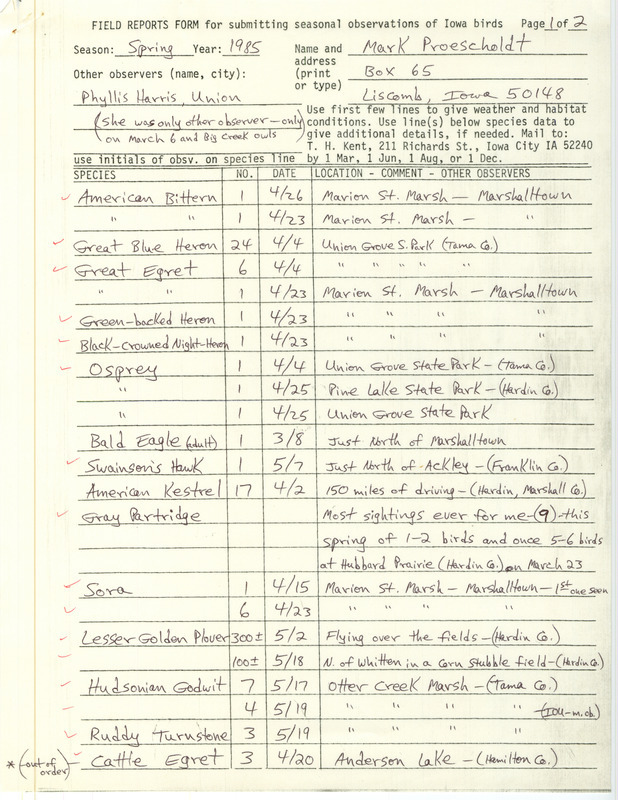 FIELD REPORTS FORM for submitting seasonal observations of Iowa birds Page 1 of 2
Season: Spring Year: 1985 Name and address (print or type) Mark Proescholdt
Box 65
Liscomb, Iowa 50148
Other observers (name, city):
Phyllis Harris, Union
(she was only other observer—only
on March 6 and Big Creek owls)
use initials of obsv. on species line
Use first few lines to give weather and habitat
conditions. Use line(s) below species data to
give additional details, if needed. Mail to:
T. H. Kent, 211 Richards St., Iowa City IA 52240
by 1 Mar, 1 Jun, 1 Aug, or 1 Dec.
SPECIES NO. DATE LOCATION - COMMENT - OTHER OBSERVERS
✓ American Bittern 1 4/26 Marion St. Marsh — Marshalltown
" " 1 4/23 Marion St. Marsh — "
✓ Great Blue Heron 24 4/4 Union Grove S. Park (Tama Co.)
✓ Great Egret 6 4/4 " " " " "
" " 1 4/23 Marion St. Marsh — Marshalltown
✓ Green-backed Heron 1 4/23 " " " "
✓ Black-Crowned Night-Heron 1 4/23 " " " "
✓ Osprey 1 4/4 Union Grove State Park — (Tama Co.)
" 1 4/25 Pine Lake State Park — (Hardin Co.)
" 1 4/25 Union Grove State Park
Bald Eagle (adult) 1 3/8 Just North of Marshalltown
✓ Swainson's Hawk 1 5/7 Just North of Ackley — (Franklin Co.)
American Kestrel 17 4/2 150 miles of driving — (Hardin, Marshall Co.)
✓ Gray Partridge Most sightings ever for me—(9)—this
spring of 1-2 birds and once 5-6 birds
at Hubbard Prairie (Hardin Co.) on March 23
✓ Sora 1 4/15 Marion St. Marsh — Marshalltown — 1st one seen
✓ 6 4/23 " " " "
✓ Lesser Golden Plover 300± 5/2 Flying over the fields — (Hardin Co.)
✓ 100± 5/18 N. of Whitten in a corn stubble field — (Hardin Co.)
✓ Hudsonian Godwit 7 5/17 Otter Creek Marsh — (Tama Co.)
✓ 4 5/19 " " " " (IOU-m.ob.)
✓ Ruddy Turnstone 3 5/19 " " " "
* (out of order) ✓ Cattle Egret 3 4/20 Anderson Lake — (Hamilton Co.)